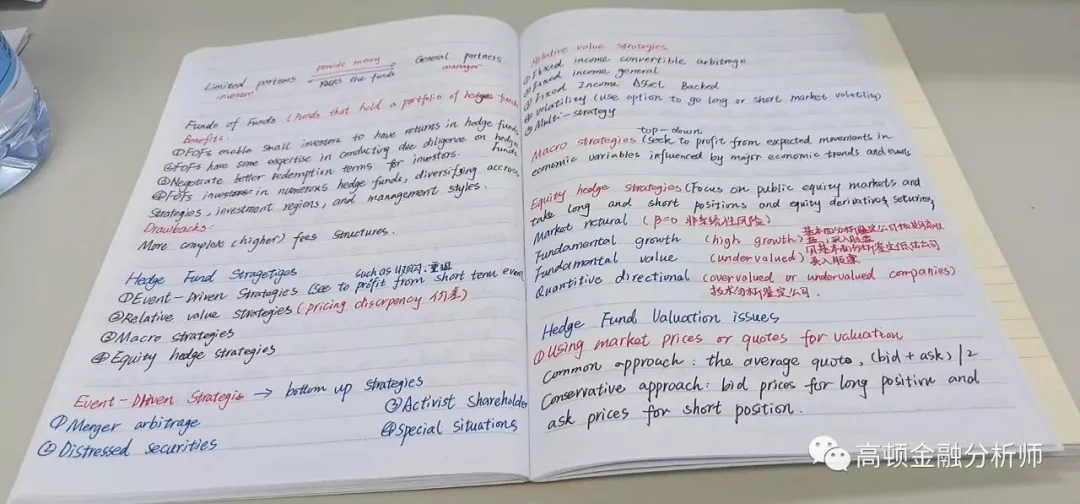 provide money
Limited partners General partners
investors runs the funds manager
Funds of Funds (funds that hold a portfolio of hedge funds
Benefits:
①FOFs enable small investors to have returns in hedge funds
②FOFs have some expertise in conducting due diligence on hedge
funds
③Negotiate better redemption terms for investors.
④FOFs in numerous hedge funds, diversifying accross
strategies, investment regions, and management styles.
Drawbacks:
More complex (higher) fees structures.
Hedge Fund Stragetiges
such as 收购、重组
①Event-Driven Strategies (see to profit from short term even
②Relative value strategies (pricing discrpency 价差)
③Macro strategies
④Equity hedge strategies
Event-Driven Strategis → bottom up strategies
①Merger arbitrage ③Activist Shareholder
②Distressed securities ④Special Situations
Relative value strategies
①Fixed income convertible arbitrage
②Fixed income general
③Fixed Income Asset Backed
④Volatility (use option to go long or short market volatility)
⑤Multi-strategy
top-down
Macro strategies (seek to profit from expected movements in
economic variables influenced by major economic trends and events
Equity hedge strategies (Focus on public equity markets and
take long and short positions and equity derivatives
Market netural (β=0 非系统性风险)
Fundamental growth (high growth) 基本面分析鉴定公司
买入股票
Fundamental value (undervalued) 用基本面分析鉴定低估公司
买入股票
Quantitive directional (overvalued or undervalued companies)
技术分析鉴定公司.
Hedge Fund Valuation issues
①Using market prices or quotes for valuation
Common approach: the average quote, (bid + ask)/2
Conservative approach: bid prices for long positive and
ask prices for short position.
高顿金融分析师